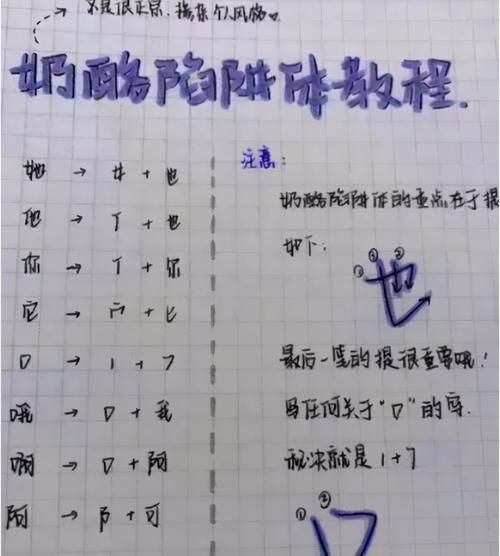 不是很正宗,掺杂个人风格。
奶酪陷阱体教程.
她 → 女 + 也
他 → 亻 + 也
你 → 亻 + 尔
它 → 宀 + 匕
口 → 1 + 7
哦 → 口 + 我
啊 → 口 + 阿
阿 → 阝 + 可
注意:
奶酪陷阱体的重点在于提
如下:
① ② ③
也
最后一笔的提很重要哦!
写任何关于“口”的字.
秘诀就是1+7
① ②
口